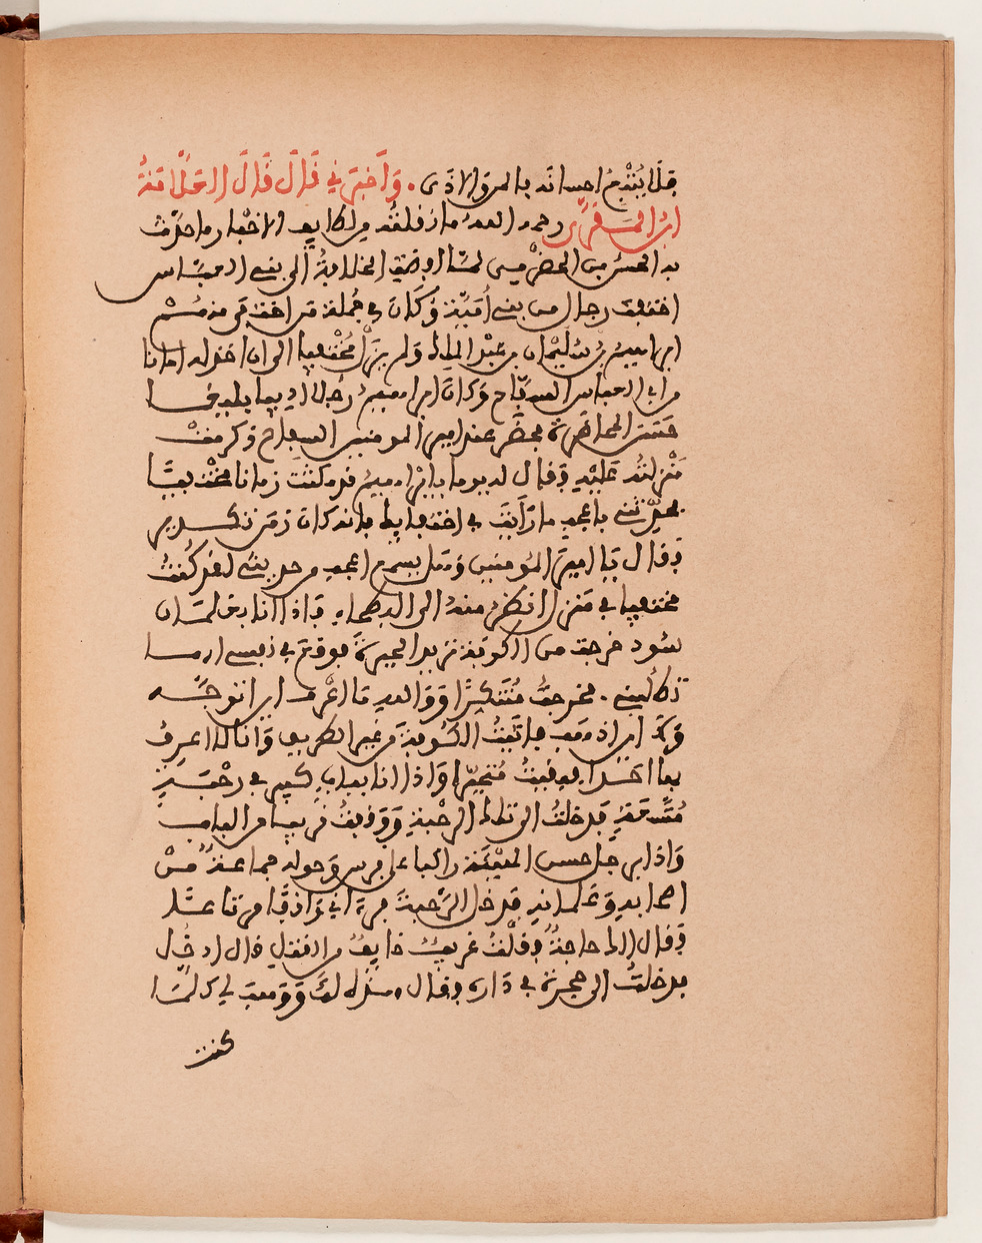 فلا يتبع احسانه بالمن والاذى. وأخبرني قال قال العلامة
ابن المقري رحمه الله ما نقلته من لطايف الاخبار ما حدث
به الحسن بن الحضرمي لما افضت الخلافة الى بني العباس
اختفت رجال من بني أمية وكان في جملة من اختفى منهم
ابراهيم بن سليمان بن عبد الملك ولم يزل مختفيا الى ان اخذ له امانا
من ابي العباس السفاح وكان ابراهيم رجلا اديبا بليغا
حسن المحاضرة فحضر عند امير المومنين السفاح وكرمت
منزلته عليه فقال له يوما يا ابراهيم قد مكثت زمانا مختفيا
فحدثني باعجب ما رأيت في اختفايك فانه كان زمن تكدير
فقال يا امير المؤمنين وهل يسمع اعجب من حديثي لقد كنت
مختفيا في منزل انظر منه الى البطحاء فاذا انا بعلمان
سود خرجت من الكوفة تريد الحيرة فوقع في نفسي انها
تطلبني. فخرجت متنكرا ووالله ما اعرف اين اتوجه
ولا اين اذهب فاتيت الكوفة من غير الطريق وانا لا اعرف
بها احدا فبقيت متحيرا واذا انا بباب كبير في رحبة
متسعة فدخلت الى تلك الرحبة ووقفت قريبا من الباب
واذا برجل حسن الهيئة راكبا على فرس وحوله جماعة من
اصحابه وغلمانه فدخل الرحبة فرءاني واقفا مرتاعا
فقال الك حاجة فقلت غريب خايف من القتل قال ادخل
فدخلت الى حجرة في داره فقال هذه لك ووهب لي كلما
كنت